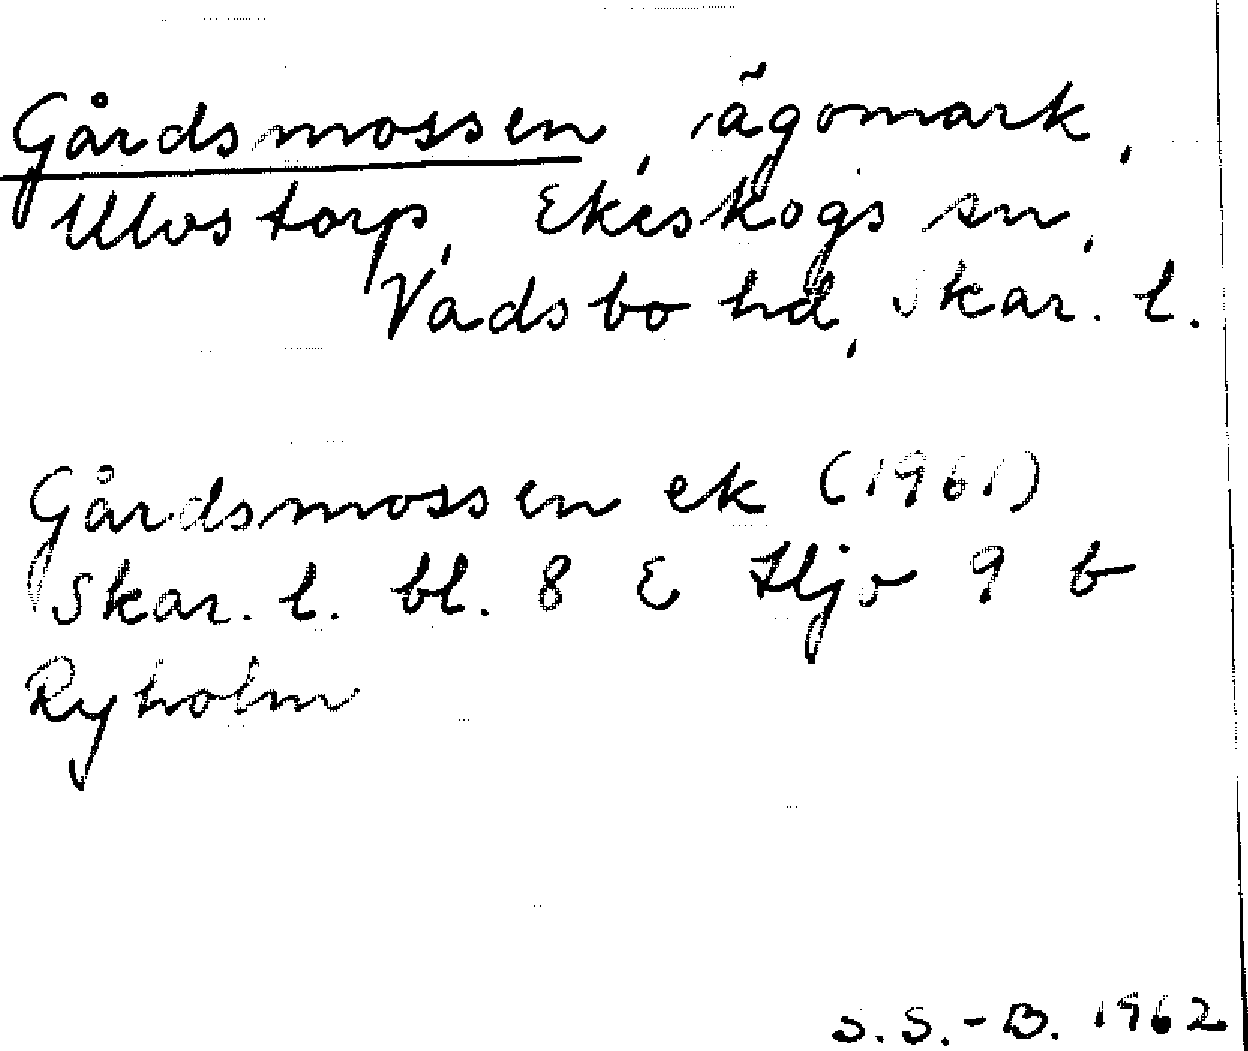 Gårdsmossen, ägomark,
Ulvstorp, Ekeskogs sn,
Vadsbo hd, Skar. l.
Gårdsmossen ek (1961)
Skar. l. bl. 8 E Hjo 9 b
Ryholm
S.S.-B. 1962